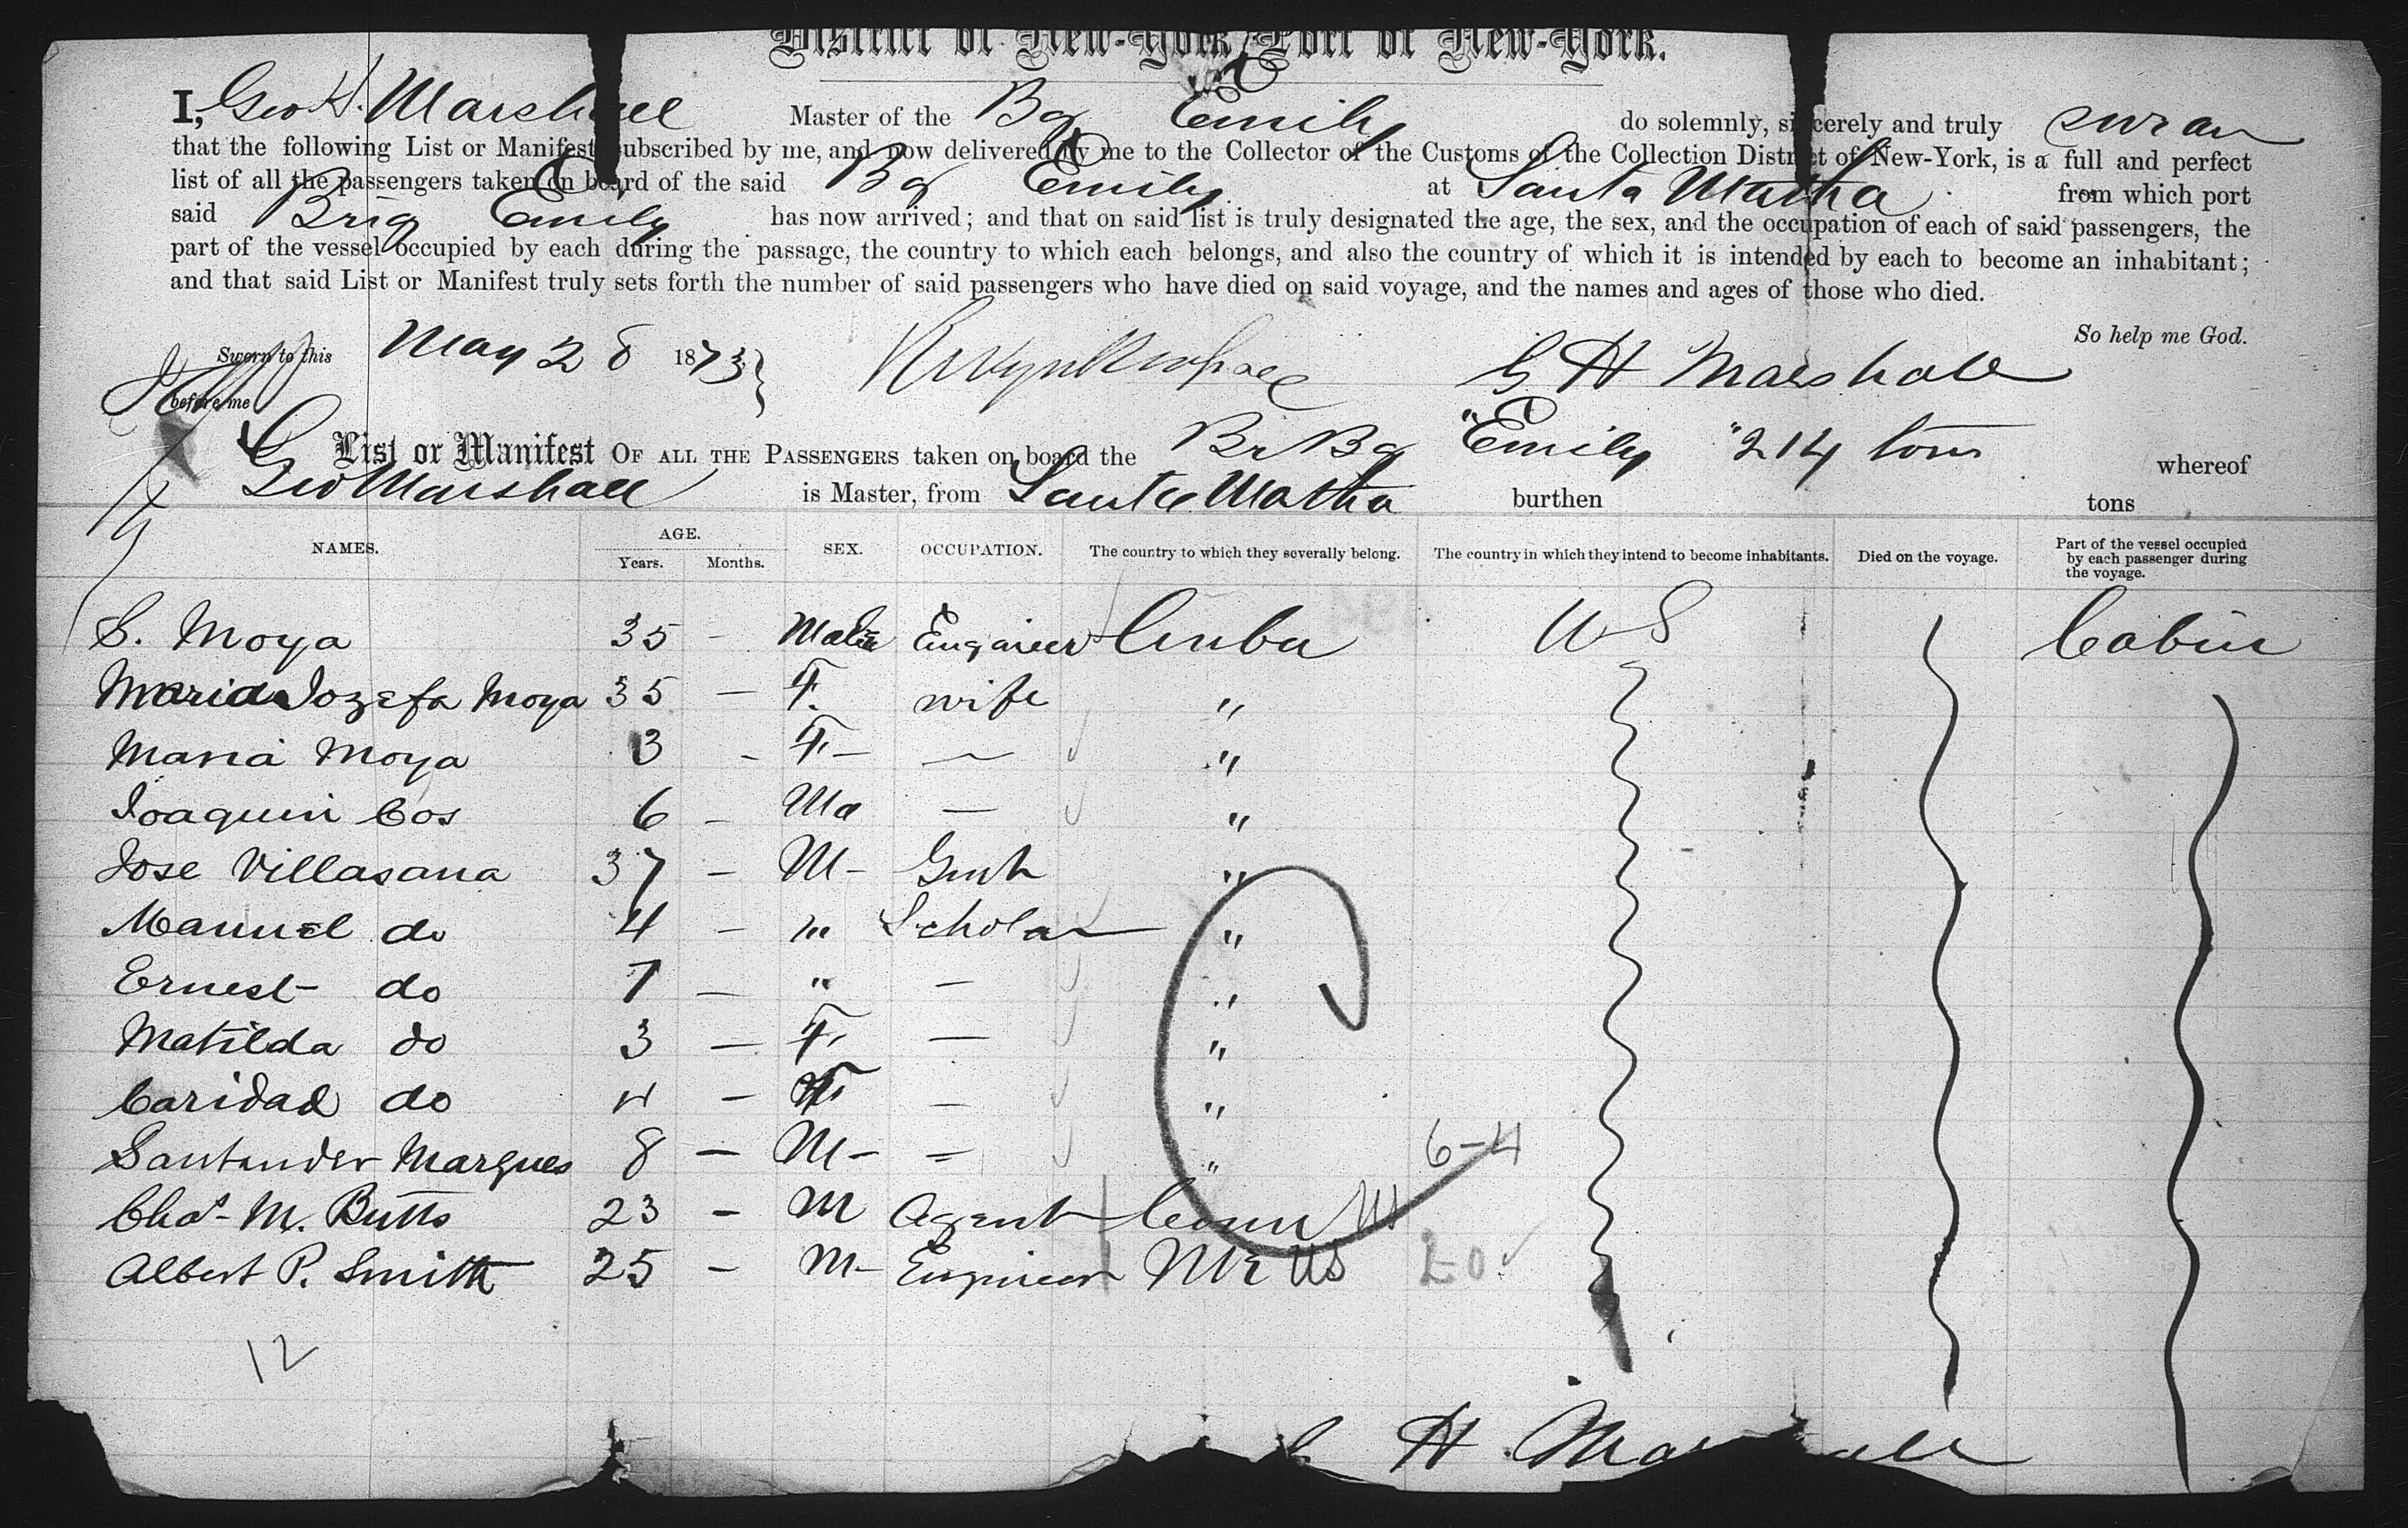 District of New-York, Port of New-York.
I, Geo H. Marshall Master of the Bg Emily do solemnly, sincerely and truly swear
that the following List or Manifest subscribed by me, and now delivered by me to the Collector of the Customs of the Collection District of New-York, is a full and perfect
list of all the passengers taken on board of the said Bg Emily at Santa Martha from which port
said Brig Emily has now arrived; and that on said list is truly designated the age, the sex, and the occupation of each of said passengers, the
part of the vessel occupied by each during the passage, the country to which each belongs, and also the country of which it is intended by each to become an inhabitant;
and that said List or Manifest truly sets forth the number of said passengers who have died on said voyage, and the names and ages of those who died.
So help me God.
Sworn to this May 28 1873
before me
G H Marshall
List or Manifest OF ALL THE PASSENGERS taken on board the Br Bg "Emily" 214 tons whereof
Geo Marshall is Master, from Santa Matha burthen tons
NAMES. AGE. Years. Months. SEX. OCCUPATION. The country to which they severally belong. The country in which they intend to become inhabitants. Died on the voyage. Part of the vessel occupied by each passenger during the voyage.
S. Moya 35 - Male Engineer Cuba U S Cabin
Maria Jozefa Moya 35 - F. wife "
Maria Moya 3 - F. - — "
Joaquin Cos 6 - Ma — "
Jose Villasana 37 - M - "
Manuel do 4 - " Scholar "
Ernest do 7 - " - "
Matilda do 3 - F. — "
Caridad do 4 - F - "
Santander Marques 8 - M - = "
6-4
Chas. M. Butts 23 - M Agent Conn US
Albert P. Smith 25 - M - Engineer US 20
12
H Marshall